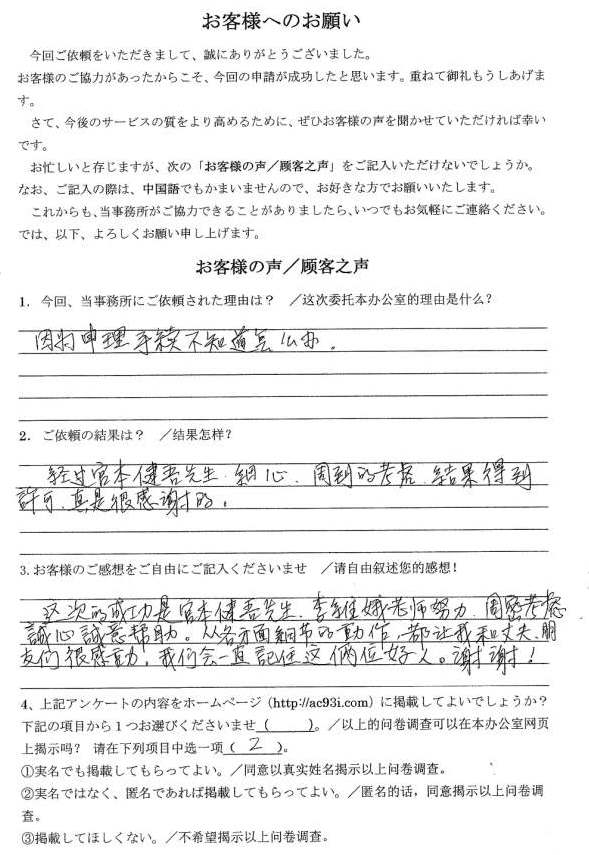 お客様へのお願い
今回ご依頼をいただきまして、誠にありがとうございました。
お客様のご協力があったからこそ、今回の申請が成功したと思います。重ねて御礼もうしあげま
す。
さて、今後のサービスの質をより高めるために、ぜひお客様の声を聞かせていただければ幸い
です。
お忙しいと存じますが、次の「お客様の声／顾客之声」をご記入いただけないでしょうか。
なお、ご記入の際は、中国語でもかまいませんので、お好きな方でお願いいたします。
これからも、当事務所がご協力できることがありましたら、いつでもお気軽にご連絡ください。
では、以下、よろしくお願い申し上げます。
お客様の声／顾客之声
1. 今回、当事務所にご依頼された理由は？ ／这次委托本办公室的理由是什么？
因为申理手続不知道怎么办。
2. ご依頼の結果は？ ／结果怎样？
经过宮本健吾先生、細心、周到的考虑、結果得到
許可、真是很感谢的。
3.お客様のご感想をご自由にご記入くださいませ ／请自由叙述您的感想！
这次的成功是宮本健吾先生、李 娥老师努力、周密考慮
誠心誠意帮助。从各方面細节的動作、都让我和丈夫、朋
友们很感動，我们会一直記住这俩位好人。谢谢！
4、上記アンケートの内容をホームページ（http://ac93i.com）に掲載してよいでしょうか？
下記の項目から１つお選びくださいませ（　　）。／以上的问卷调查可以在本办公室网页
上揭示吗？ 请在下列项目中选一项（ 2 ）。
①実名でも掲載してもらってよい。／同意以真实姓名揭示以上问卷调查。
②実名ではなく、匿名であれば掲載してもらってよい。／匿名的话，同意揭示以上问卷调
查。
③掲載してほしくない。／不希望揭示以上问卷调查。